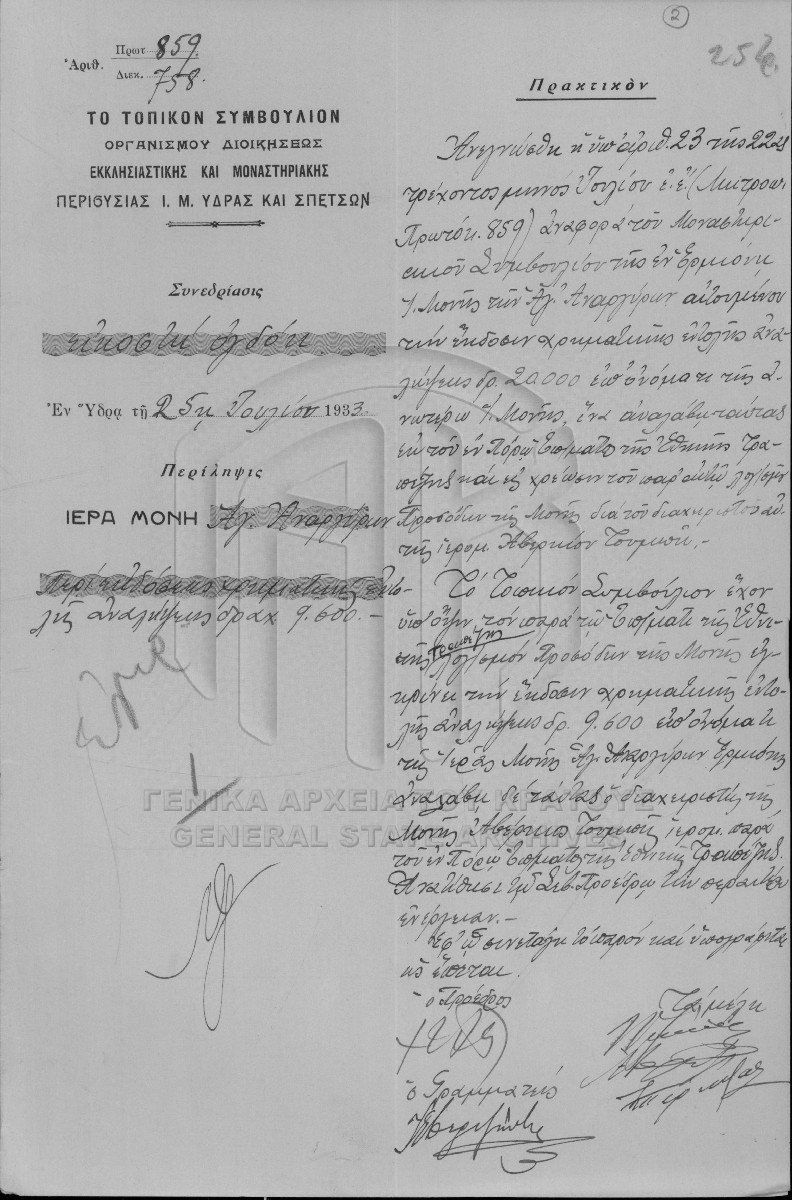 2
25
Ἀριθ. Πρωτ 859
Διεκ. 758.
ΤΟ ΤΟΠΙΚΟΝ ΣΥΜΒΟΥΛΙΟΝ
ΟΡΓΑΝΙΣΜΟΥ ΔΙΟΙΚΗΣΕΩΣ
ΕΚΚΛΗΣΙΑΣΤΙΚΗΣ ΚΑΙ ΜΟΝΑΣΤΗΡΙΑΚΗΣ
ΠΕΡΙΟΥΣΙΑΣ Ι. Μ. ΥΔΡΑΣ ΚΑΙ ΣΠΕΤΣΩΝ
Συνεδρίασις
εἰκοστὴ ὀγδόη
Ἐν Ὕδρᾳ τῇ 25ῃ Ἰουλίου 1933
Περίληψις
ΙΕΡΑ ΜΟΝΗ Ἁγ. Ἀναργύρων
Περὶ ἐκδόσεως χρηματικῆς ἐντο-
λῆς ἀναλήψεως δραχ 9.600.-
Πρακτικὸν
Ἀνεγνώσθη ἡ ὑπ' ἀριθ. 23 τῆς 22ας
τρέχοντος μηνὸς Ἰουλίου ἐ.ἔ. (Μητροπ.
Πρωτόκ. 859) ἀναφορὰ τοῦ Μοναστηρι-
ακοῦ Συμβουλίου τῆς ἐν Ἑρμιόνῃ
Ἱ. Μονῆς τῶν Ἁγ. Ἀναργύρων αἰτουμένου
τὴν ἔκδοσιν χρηματικῆς ἐντολῆς ἀνα-
λήψεως δρ. 20000 ἐπ' ὀνόματι τῆς ἀ-
νωτέρω Ἱ. Μονῆς, ἵνα ἀναλάβῃ ταύτας
ἐκ τοῦ ἐν Πόρῳ Ὑποκ/ματος τῆς Ἐθνικῆς Τρα-
πέζης καὶ εἰς χρέωσιν τοῦ παρ' αὐτῇ λογ/σμοῦ
Προσόδων τῆς Μονῆς διὰ τοῦ διαχειριστοῦ αὐ-
τῆς ἱερομ. Ἀβερκίου Τουμπῆ.-
Τὸ Τοπικὸν Συμβούλιον ἔχον
ὑπ' ὄψιν τὸν παρὰ τῷ Ὑποκ/ματι τῆς Ἐθνι-
κῆς Τραπέζης λογ/σμὸν Προσόδων τῆς Μονῆς ἐγ-
κρίνει τὴν ἔκδοσιν χρηματικῆς ἐντο-
λῆς ἀναλήψεως δρ. 9.600 ἐπ' ὀνόματι
τῆς Ἱερᾶς Μονῆς Ἁγ. Ἀναργύρων Ἑρμιόνης
ἀναλάβῃ δὲ ταύτας ὁ διαχειριστὴς τῆς
Μονῆς Ἀβέρκιος Τουμπῆς ἱερομ. παρὰ
τοῦ ἐν Πόρῳ Ὑποκ/ματος τῆς Ἐθνικῆς Τραπέζης.
Ἀνατίθησι τῷ Σεβ. Προέδρῳ τὴν περαιτέρω
ἐνέργειαν.-
Ἐφ' ᾧ συνετάγη τὸ παρὸν καὶ ὑπογράφεται
ὡς ἕπεται.
ὁ Πρόεδρος
Τὰ μέλη
ὁ Γραμματεὺς
ΓΕΝΙΚΑ ΑΡΧΕΙΑ ΤΟΥ ΚΡΑΤΟΥΣ
GENERAL STATE ARCHIVES